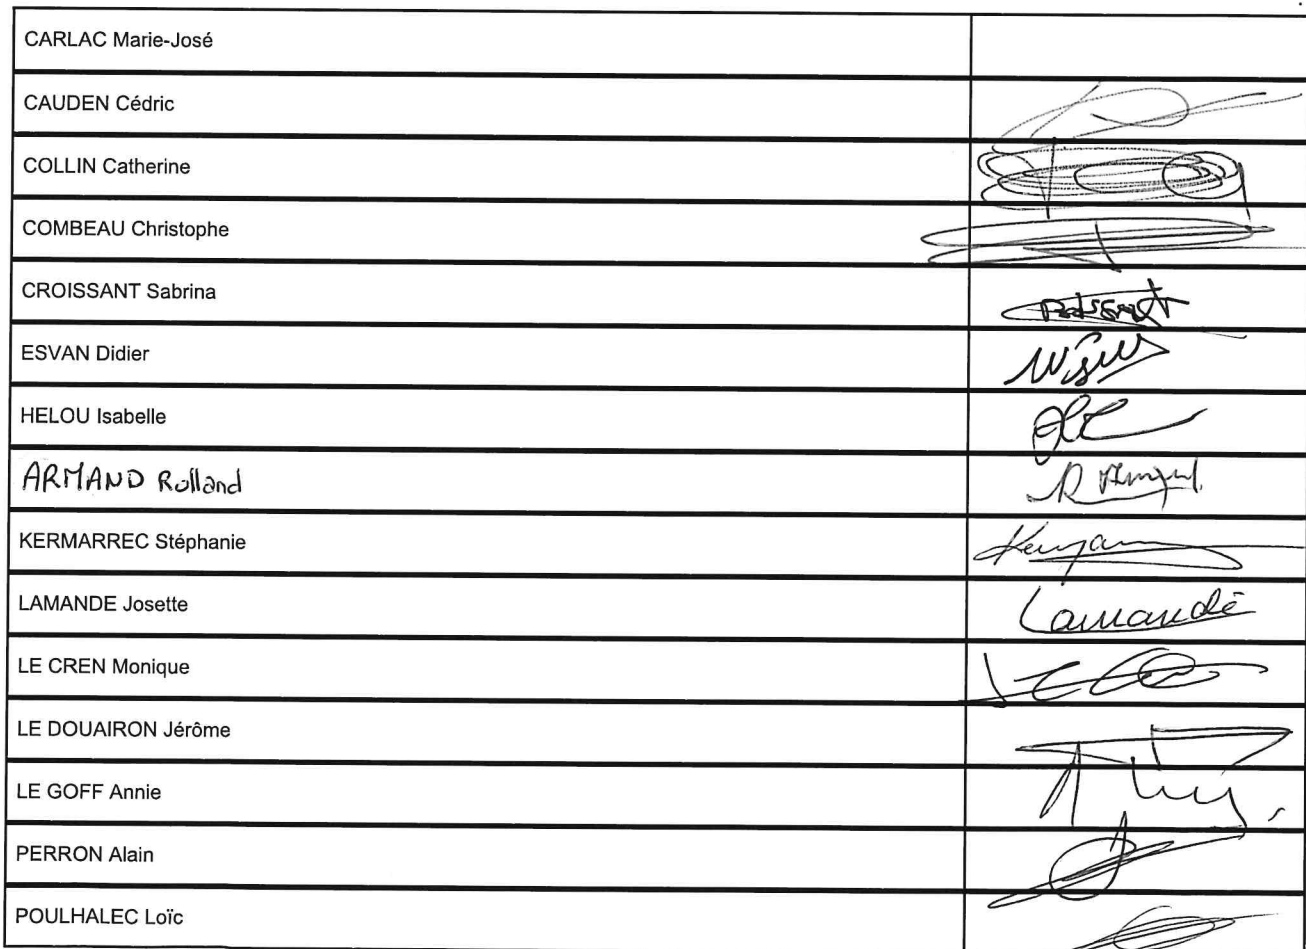 CARLAC Marie-José
CAUDEN Cédric
COLLIN Catherine
COMBEAU Christophe
CROISSANT Sabrina
ESVAN Didier
HELOU Isabelle
ARMAND Rolland
KERMARREC Stéphanie
LAMANDE Josette
Lamandé
LE CREN Monique
LE DOUAIRON Jérôme
LE GOFF Annie
PERRON Alain
POULHALEC Loïc